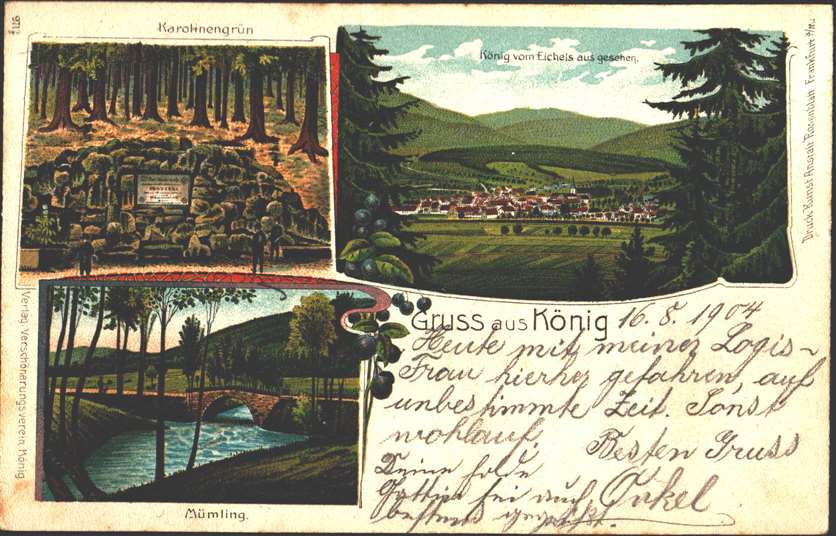 Karolinengrün
König vom Eichels aus gesehen.
Druck Kunst Anstalt Rosenblatt Frankfurt a/M.
Verlag Verschönerungsverein König
Mümling.
Gruss aus König 16. 8. 1904
Heute mit meiner Logis-
Frau hierher gefahren, auf
unbestimmte Zeit. Sonst
wohlauf. Besten Gruss
Onkel
Deine holde
Gattin sei auch
bestens gegrüßt.